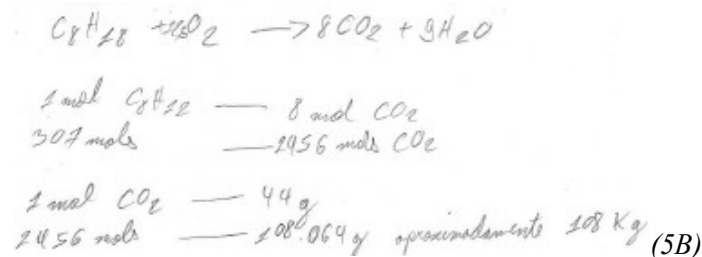 C8H18 + O2 —> 8CO2 + 9H2O
1 mol C8H18 — 8 mol CO2
307 mols — 2456 mols CO2
1 mol CO2 — 44 g
2456 mols — 108.064 g aproximadamente 108 Kg (5B)